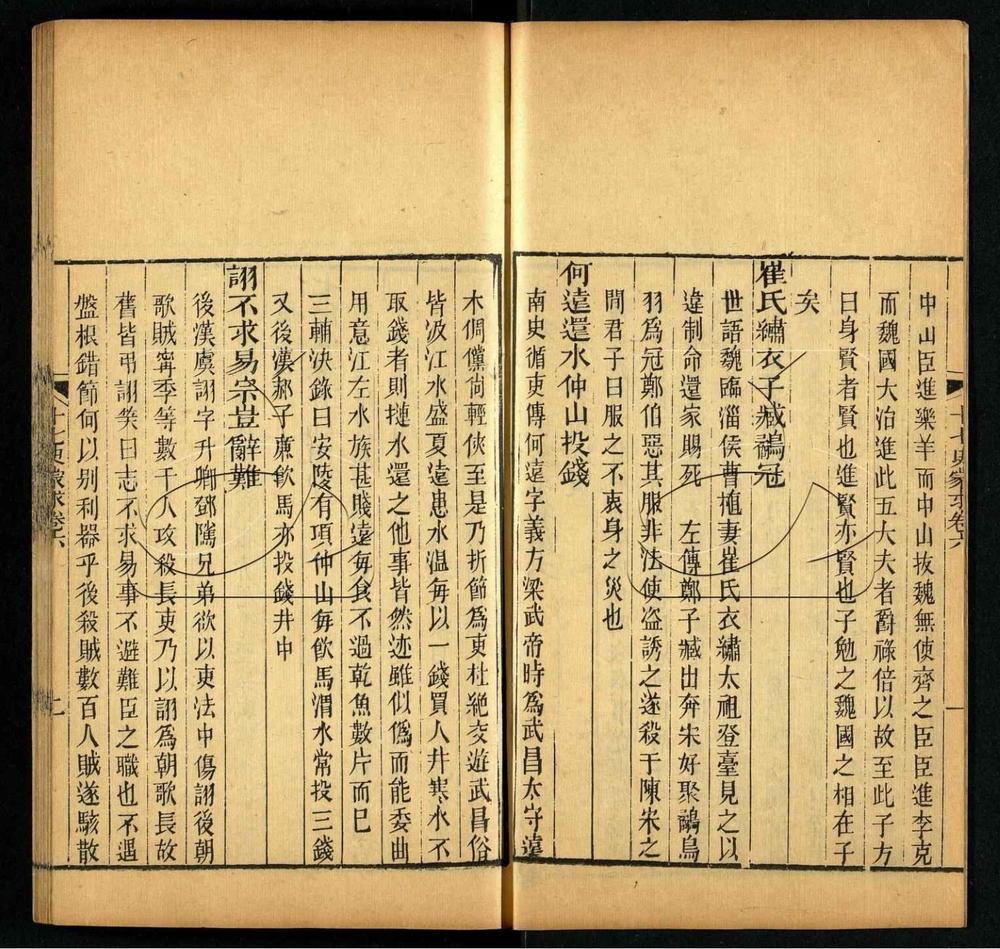 中山臣進樂羊而中山拔魏無使齊之臣臣進李克
而魏國大治進此五大夫者爵祿倍以故至此子方
曰身賢者賢也進賢亦賢也子勉之魏國之相在子
矣
崔氏繡衣子臧鷸冠
世語魏臨淄侯曹植妻崔氏衣繡太祖登臺見之以
違制命還家賜死 左傳鄭子臧出奔宋好聚鷸鳥
羽爲冠鄭伯惡其服非法使盗誘之遂殺于陳宋之
間君子曰服之不衷身之災也
何遠還水仲山投錢
南史循吏傳何遠字義方梁武帝時爲武昌太守遠
木倜儻尚輕俠至是乃折節爲吏杜絶交遊武昌俗
皆汲江水盛夏遠患水温每以一錢買人井寒水不
取錢者則摙水還之他事皆然迹雖似僞而能委曲
用意江左水族甚賤遠每食不過乾魚數片而已
三輔決錄曰安陵有項仲山每飲馬渭水常投三錢
又後漢郝子廉飲馬亦投錢井中
詡不求易宗豈辭難
後漢虞詡字升卿鄧隲兄弟欲以吏法中傷詡後朝
歌賊甯季等數千人攻殺長吏乃以詡爲朝歌長故
舊皆弔詡笑曰志不求易事不避難臣之職也不遇
盤根錯節何以别利器乎後殺賊數百人賊遂駭散
十七史蒙求卷六